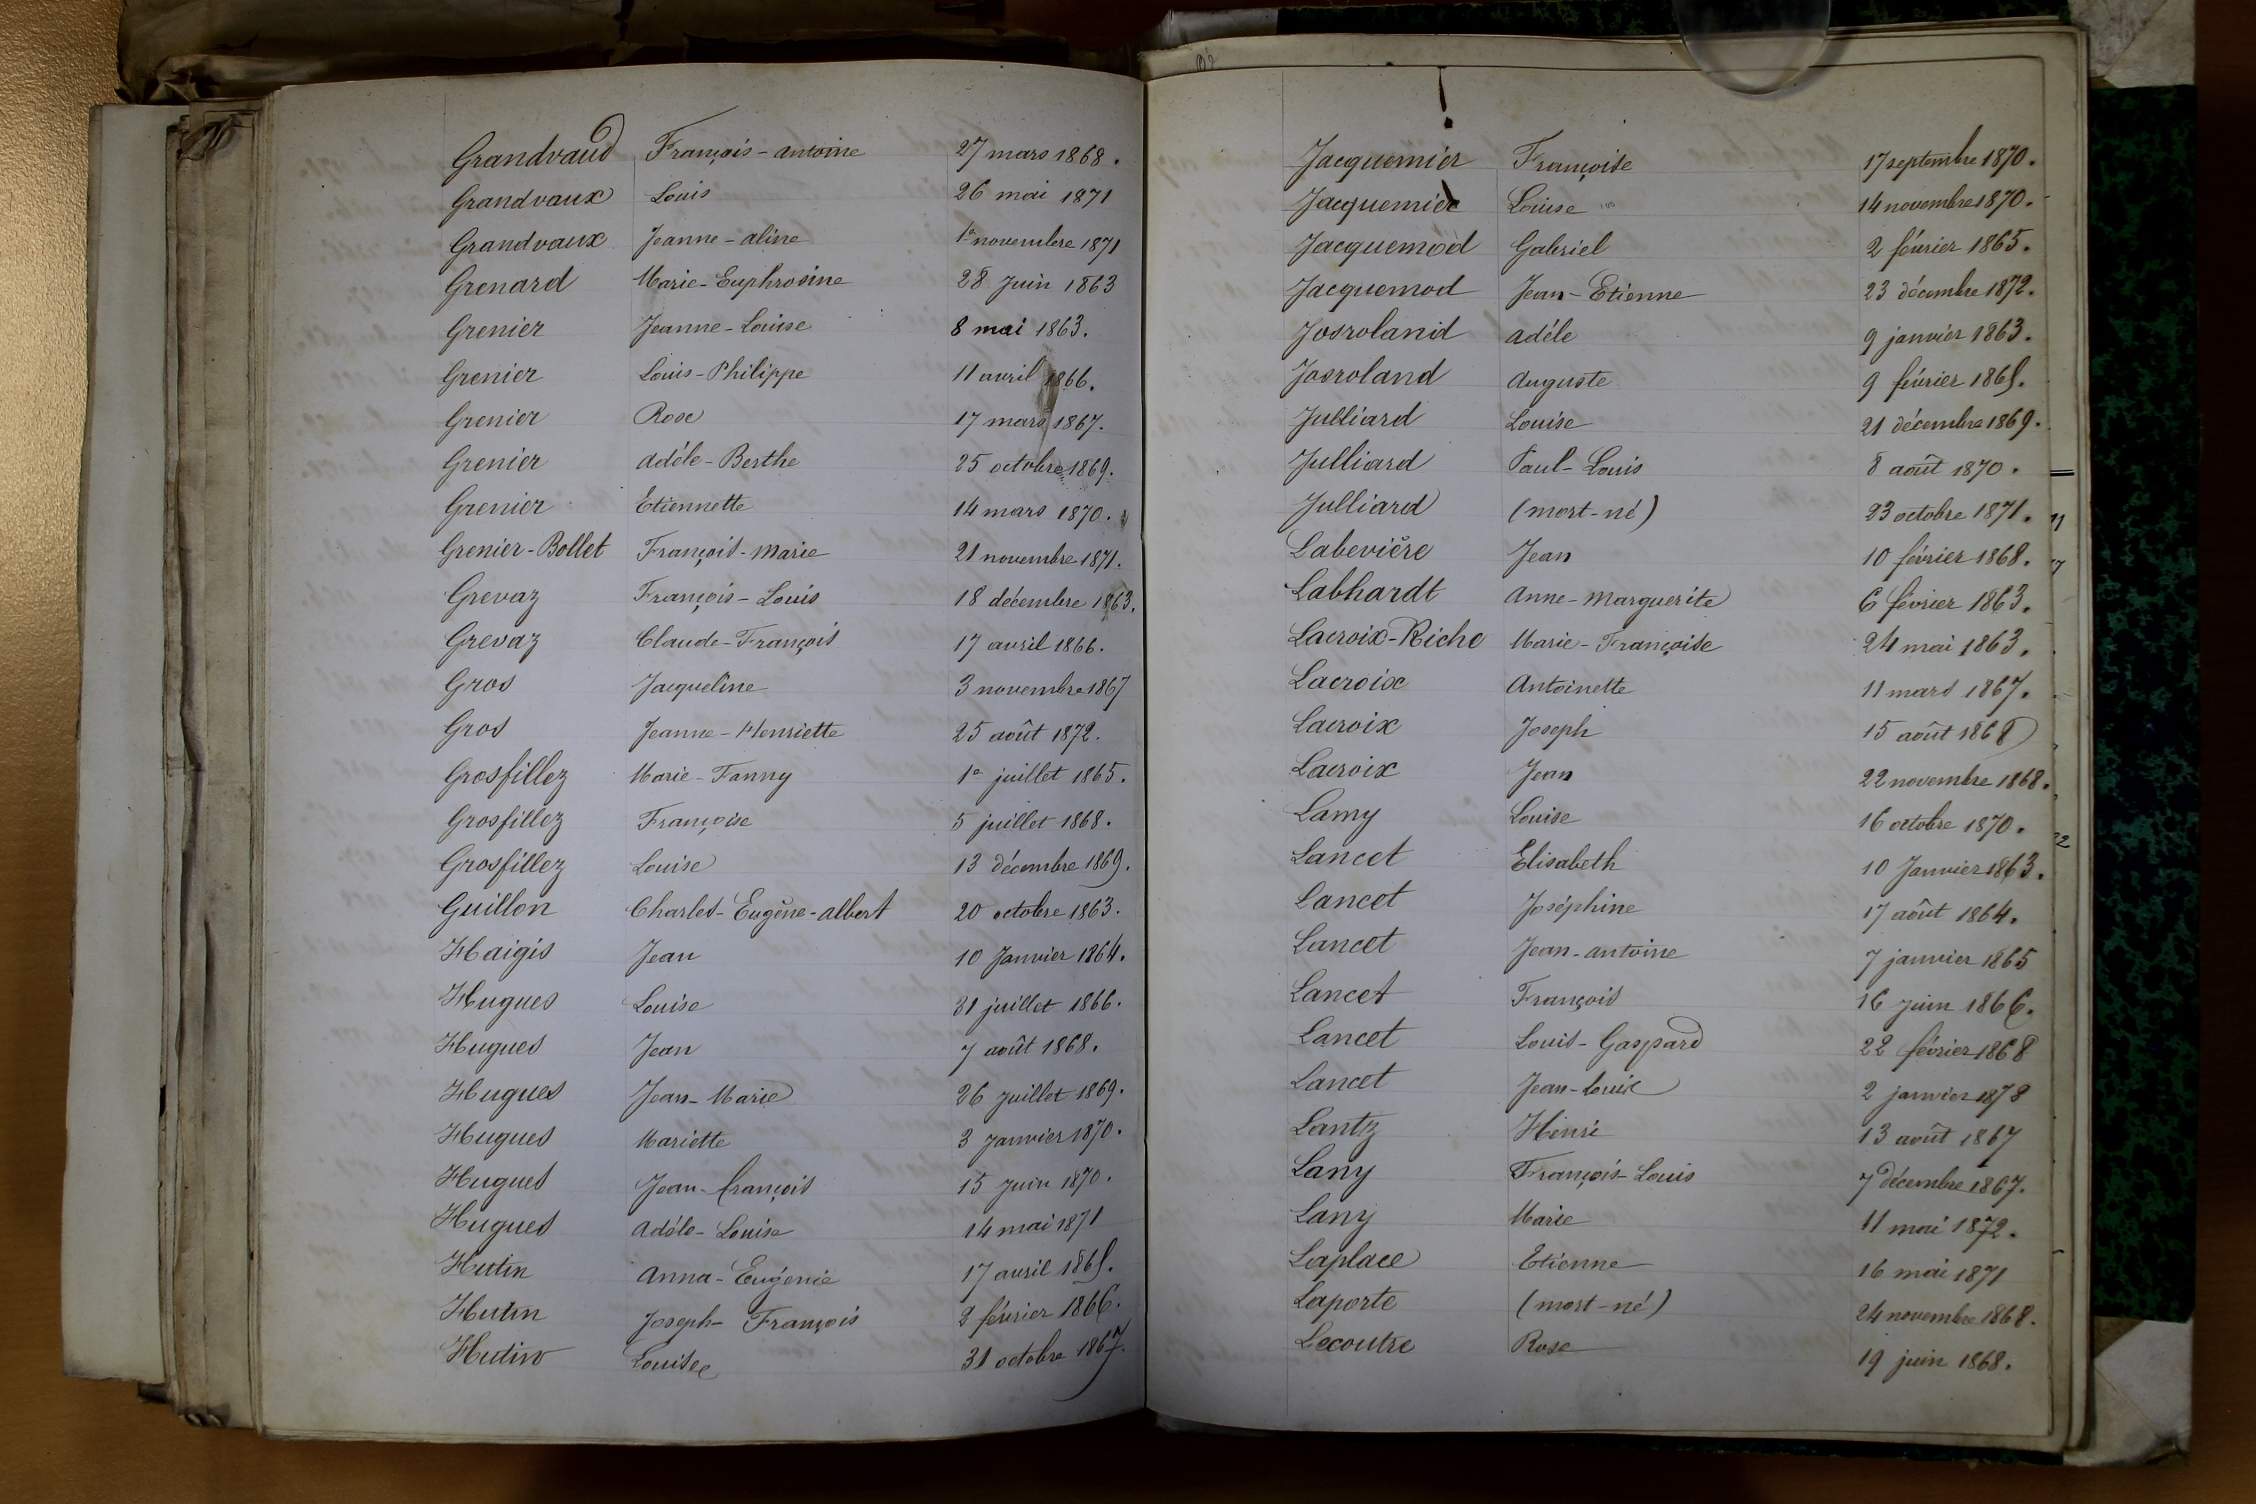 Grandvaud François-antoine 27 mars 1868.
Grandvaux Louis 26 mai 1871
Grandvaux Jeanne-aline 1er novembre 1871
Grenard Marie-Euphrosine 28 Juin 1863
Grenier Jeanne-Louise 8 mai 1863.
Grenier Louis-Philippe 11 avril 1866.
Grenier Rose 17 mars 1867.
Grenier adèle-Berthe 25 octobre 1869.
Grenier Etiennette 14 mars 1870.
Grenier-Bollet François-marie 21 novembre 1871.
Grevaz François-Louis 18 décembre 1863.
Grevaz Claude-François 17 avril 1866.
Gros Jacqueline 3 novembre 1867
Gros Jeanne-Henriette 25 août 1872.
Grosfillez Marie-Fanny 1er juillet 1865.
Grosfillez Françoise 5 juillet 1868.
Grosfillez Louise 13 décembre 1869.
Guillon Charles-Eugène-albert 20 octobre 1863.
Haigis Jean 10 Janvier 1864.
Hugues Louise 31 juillet 1866.
Hugues Jean 7 août 1868.
Hugues Jean-Marie 26 Juillet 1869.
Hugues Mariette 3 Janvier 1870.
Hugues Jean-françois 15 Juin 1870.
Hugues adèle-Louise 14 mai 1871
Hutin anna-Eugénie 17 avril 1865.
Hutin Joseph-François 2 février 1866.
Hutin Louise 31 octobre 1867.
Jacquemier Françoise 17 septembre 1870.
Jacquemier Louise 14 novembre 1870.
Jacquemod Gabriel 2 février 1865.
Jacquemod Jean-Etienne 23 décembre 1872.
Josroland adèle 9 janvier 1863.
Josroland auguste 9 février 1865.
Julliard Louise 21 décembre 1869.
Julliard Paul-Louis 8 août 1870.
Julliard (mort-né) 23 octobre 1871.
Labevière Jean 10 février 1868.
Labhardt anne-marguerite 6 février 1863.
Lacroix-Riche Marie-Françoise 24 mai 1863.
Lacroix Antoinette 11 mars 1867.
Lacroix Joseph 15 août 1868
Lacroix Jean 22 novembre 1868.
Lamy Louise 16 octobre 1870.
Lancet Elisabeth 10 Janvier 1863.
Lancet Joséphine 17 août 1864.
Lancet Jean-antoine 7 janvier 1865
Lancet François 16 juin 1866.
Lancet Louis-Gaspard 22 février 1868
Lancet Jean-Louis 2 janvier 1872
Lantz Henri 13 août 1867
Lany François-Louis 7 décembre 1867.
Lany Marie 11 mai 1872.
Laplace Etienne 16 mai 1871
Laporte (mort-né) 24 novembre 1868.
Lecoutre Rose 19 juin 1868.